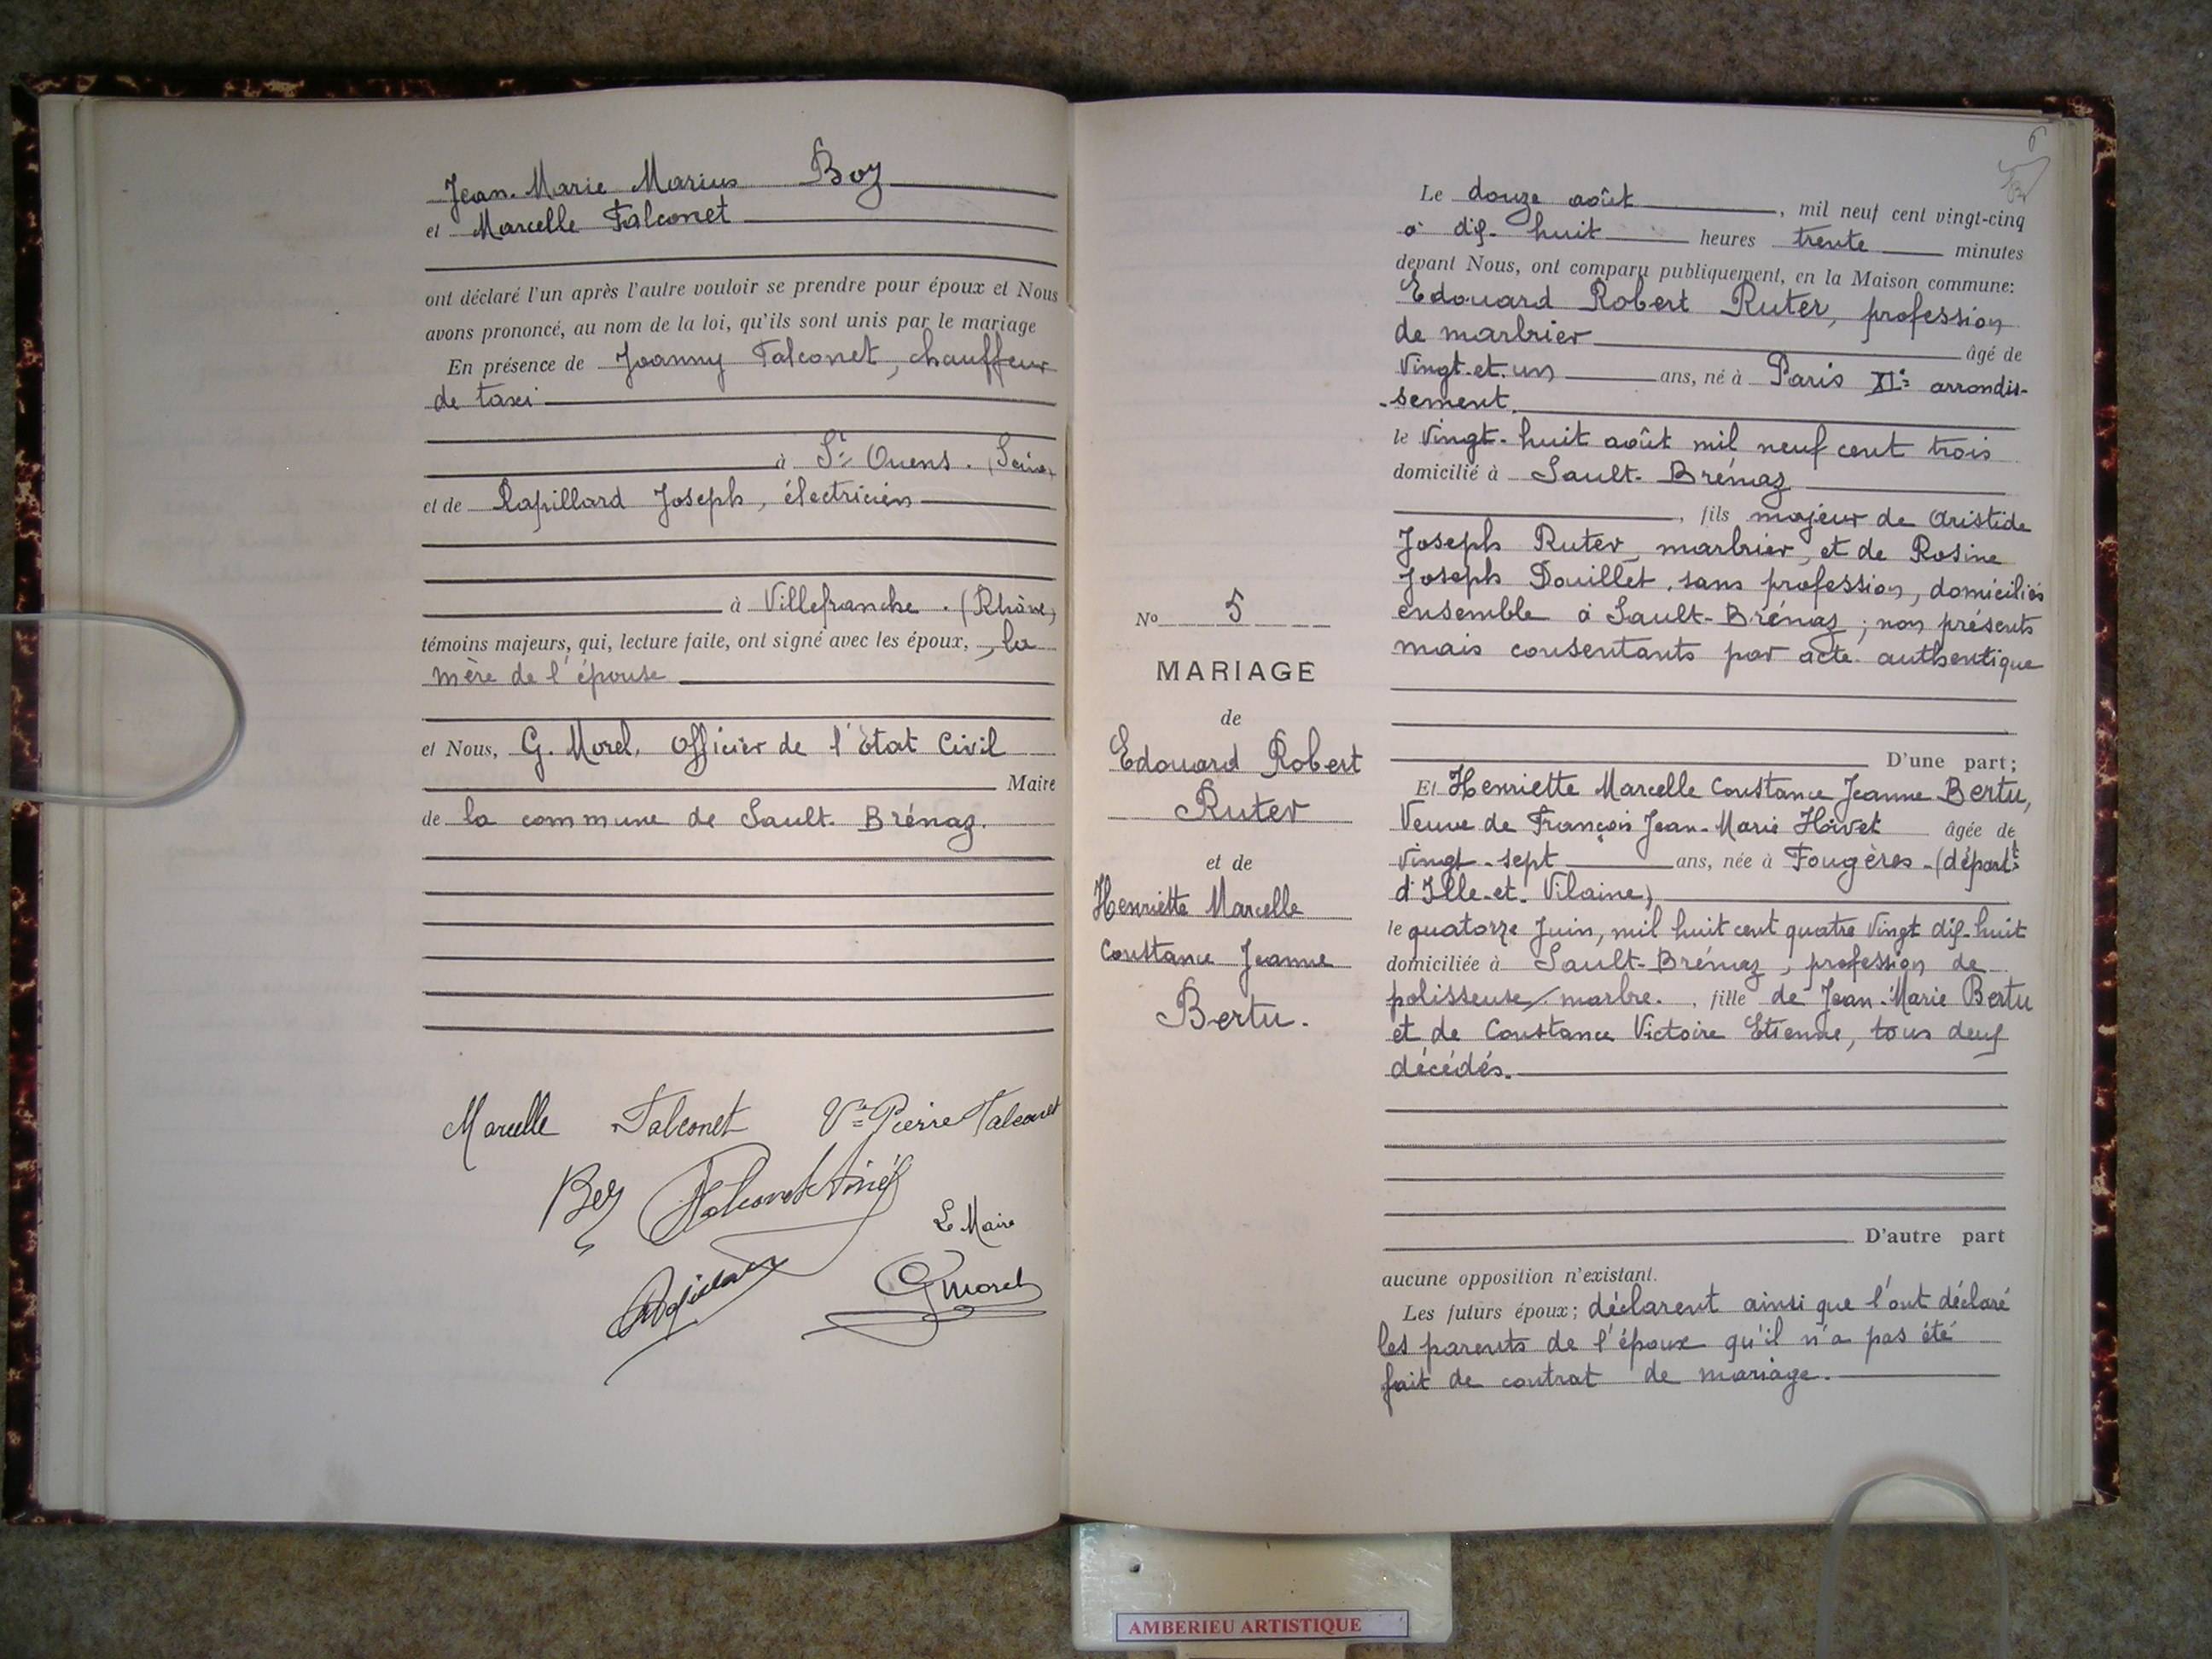 Jean-Marie Marius Boy
et Marcelle Falconet
ont déclaré l'un après l'autre vouloir se prendre pour époux et Nous
avons prononcé, au nom de la loi, qu'ils sont unis par le mariage
En présence de Joanny Falconet, chauffeur
de taxi
à St Ouens. (Seine)
et de Rapillard Joseph, électricien
à Villefranche. (Rhône)
témoins majeurs, qui, lecture faite, ont signé avec les époux, , la
mère de l'épouse
et Nous, G. Morel, Officier de l'Etat Civil
Maire
de la commune de Sault-Brénaz.
Marcelle Falconet Vve Pierre Falconet
Boy Falconet
Le Maire
G Morel
6
Le douze août, mil neuf cent vingt-cinq
à dix-huit heures trente minutes
devant Nous, ont comparu publiquement, en la Maison commune:
Edouard Robert Ruter, profession
de marbrier âgé de
Vingt-et-un ans, né à Paris XIe arrondis-
-sement.
le Vingt-huit août mil neuf cent trois
domicilié à Sault-Brénaz
, fils majeur de Aristide
Joseph Ruter, marbrier, et de Rosine
Joseph Douillet, sans profession, domiciliés
ensemble à Sault-Brénaz; non présents
mais consentants par acte authentique
D'une part;
Et Henriette Marcelle Constance Jeanne Bertu,
Veuve de François Jean-Marie Hoivet âgée de
Vingt-sept ans, née à Fougères-(départt
d'Ille-et-Vilaine)
le quatorze Juin, mil huit cent quatre Vingt dix-huit
domiciliée à Sault-Brénaz, profession de
polisseuse/marbre. , fille de Jean-Marie Bertu
et de Constance Victoire Etienne, tous deux
décédés.
D'autre part
aucune opposition n'existant.
Les futurs époux; déclarent ainsi que l'ont déclaré
les parents de l'époux qu'il n'a pas été
fait de contrat de mariage.
No 5
MARIAGE
de
Edouard Robert
Ruter
et de
Henriette Marcelle
Constance Jeanne
Bertu.
AMBERIEU ARTISTIQUE